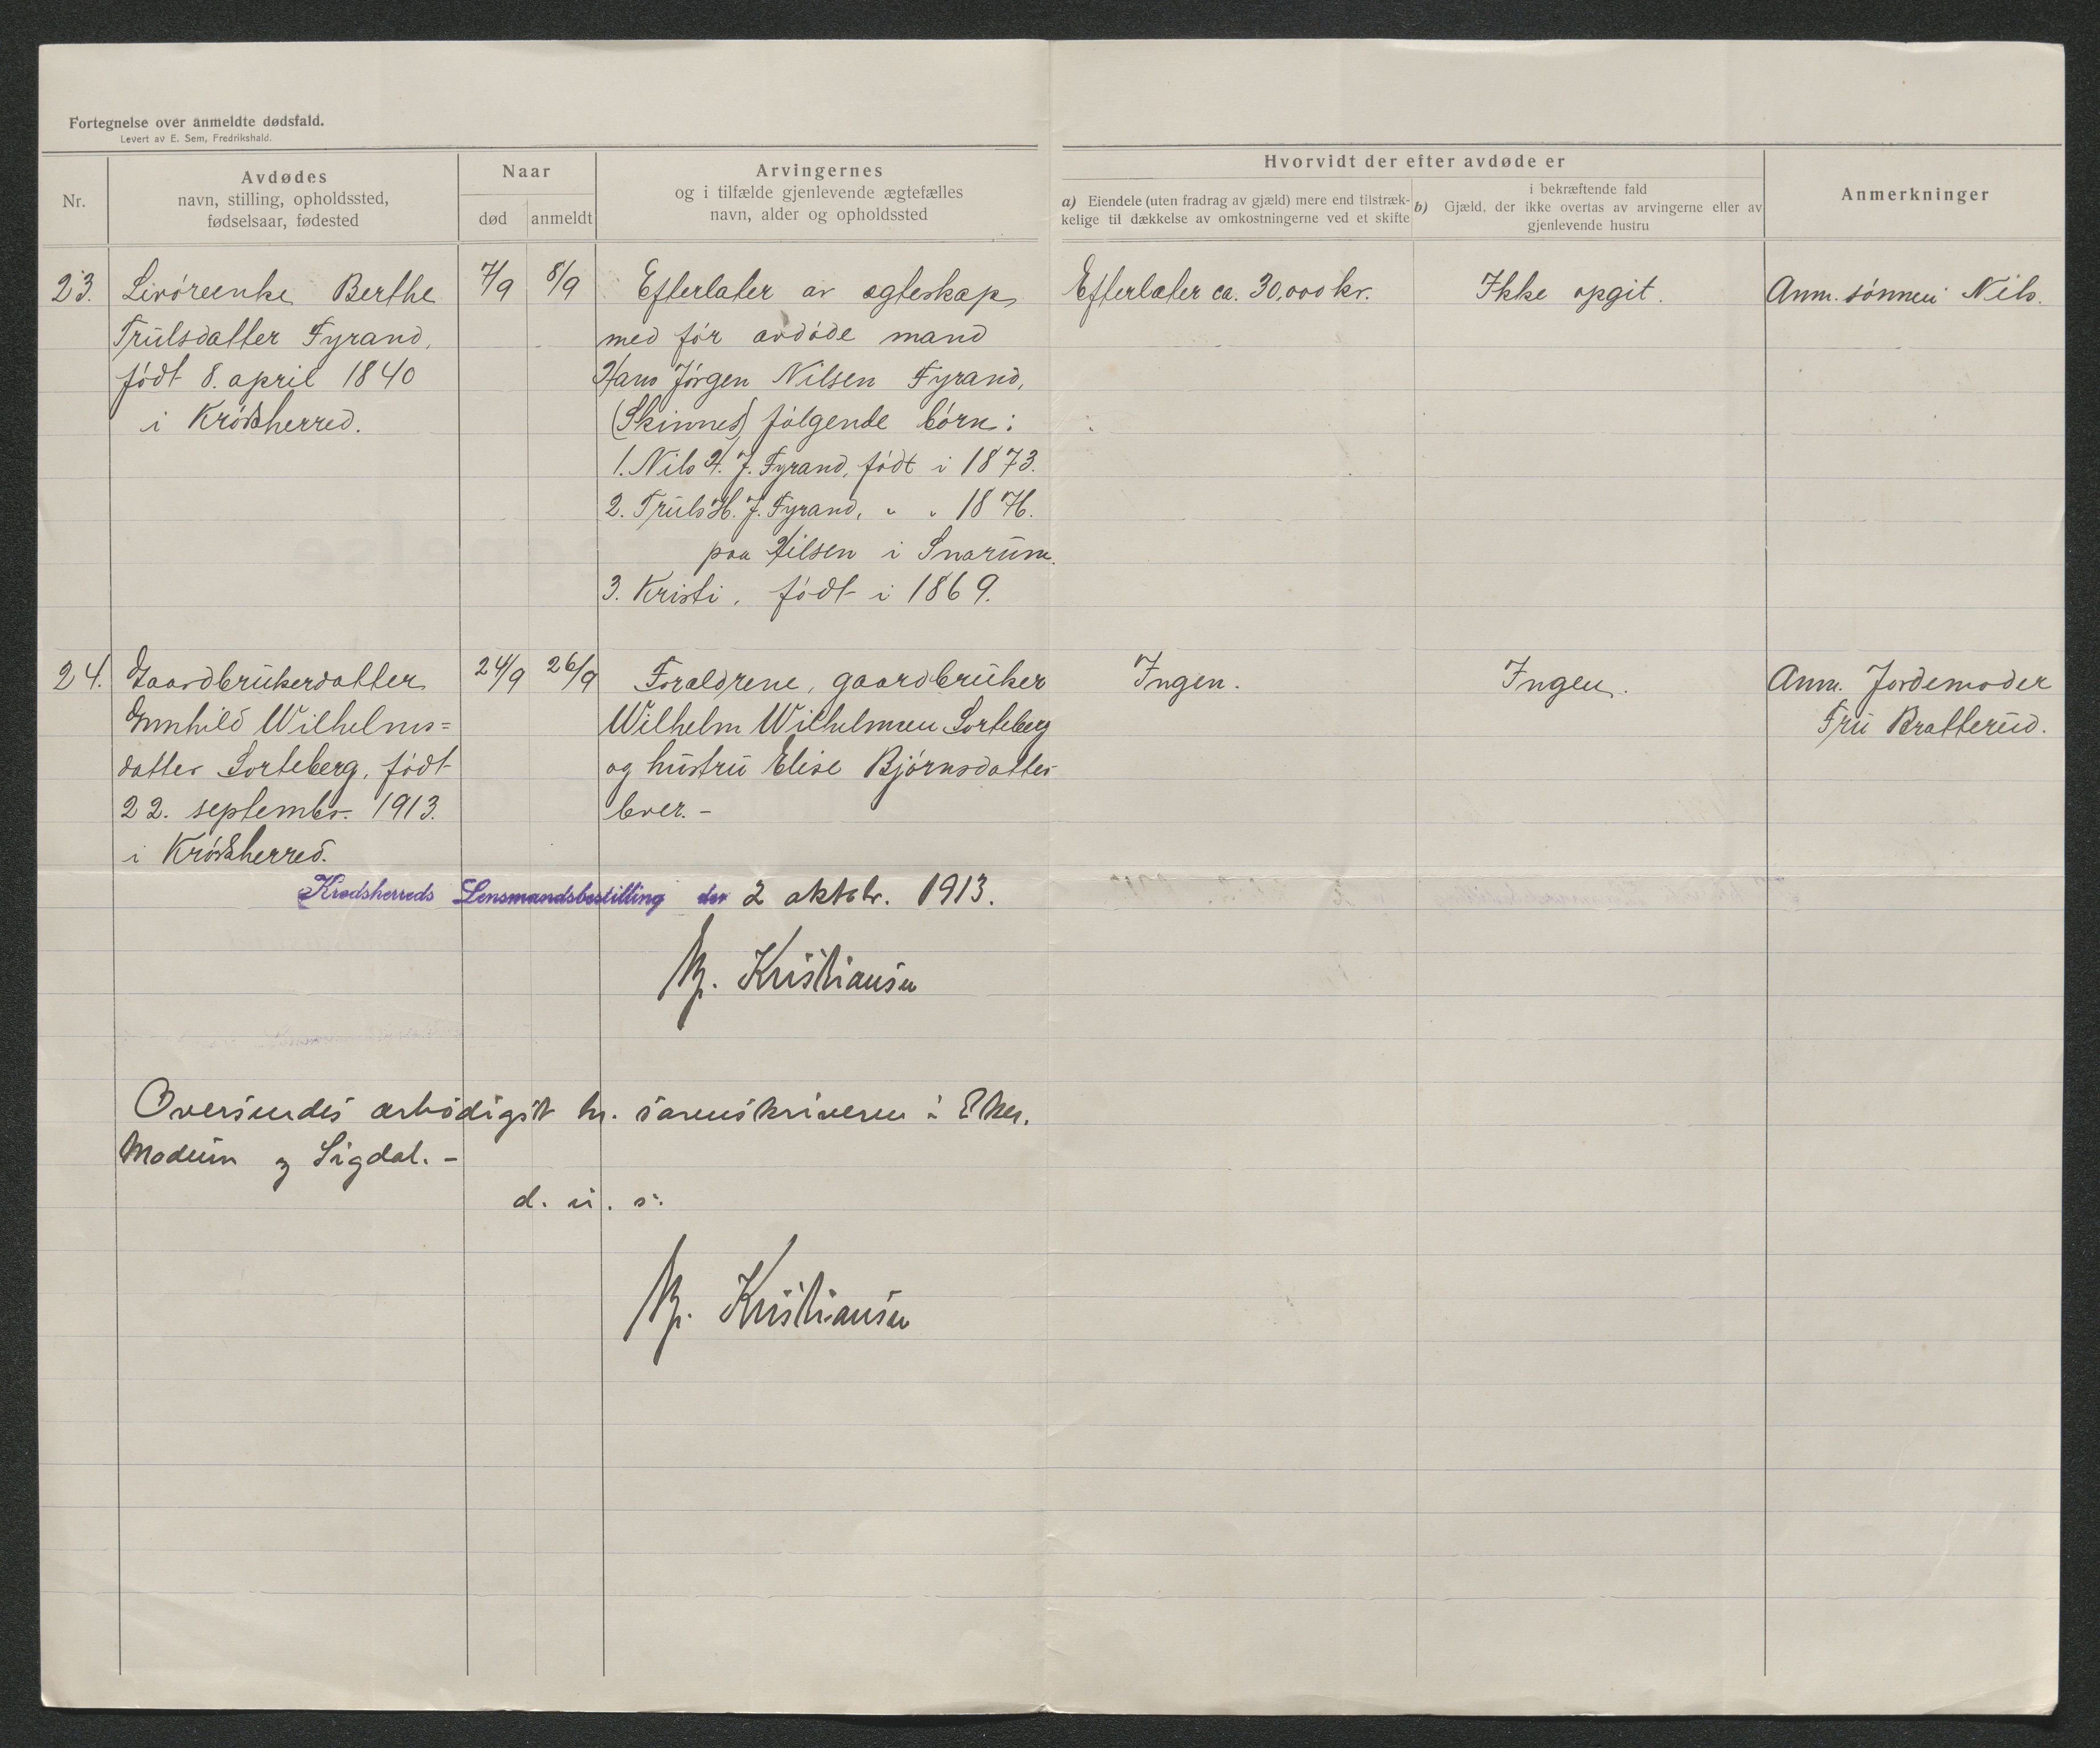 Fortegnelse over anmeldte dødsfald.
Levert av E. Sem, Fredrikshald.
Nr.
Avdødes
navn, stilling, opholdssted,
fødselsaar, fødested
Naar
død
anmeldt
Arvingernes
og i tilfælde gjenlevende ægtefælles
navn, alder og opholdssted
Hvorvidt der efter avdøde er
a) Eiendele (uten fradrag av gjæld) mere end tilstræk-
kelige til dækkelse av omkostningerne ved et skifte
i bekræftende fald
b) Gjæld, der ikke overtas av arvingerne eller av
gjenlevende hustru
Anmerkninger
23.
Livøreenke Berthe
Trulsdatter Fyrand,
født 8. april 1840
i Krødsherred.
7/9
8/9
Efterlater av egteskap
med før avdøde mand
Hans Jørgen Nilsen Fyrand,
(Skinnes) følgende børn:
1. Nils H. J. Fyrand, født i 1873.
2. Truls H. J. Fyrand, " " 1876.
paa Hilsen i Snarum.
3. Kristi, født i 1869.
Efterlater ca. 30,000 kr.
Ikke opgit.
Anm. sønnen Nils.
24.
Gaardbrukerdatter
Gunhild Wilhelms=
datter Sorteberg, født
22. septembr. 1913.
i Krødsherred.
24/9
26/9
Foraldrene, gaardbruker
Wilhelm Wilhelmsen Sorteberg
og hustru Elise Bjørnsdatter
lever. -
Ingen.
Ingen.
Anm. Jordemoder
Fru Bratterud.
Krødsherreds Lensmandsbestilling den 2 oktobr. 1913.
Kristiansen
Oversendes ærbødigst hr. sorenskriveren i Eker,
Modum og Sigdal. -
d. u. s.
Kristiansen